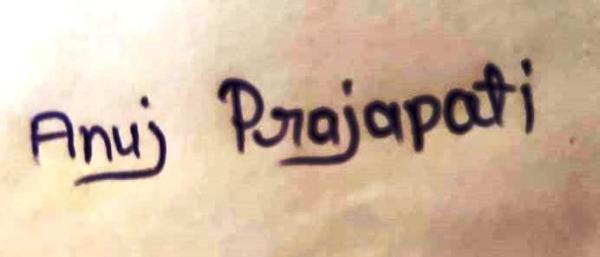 Anuj Prajapati